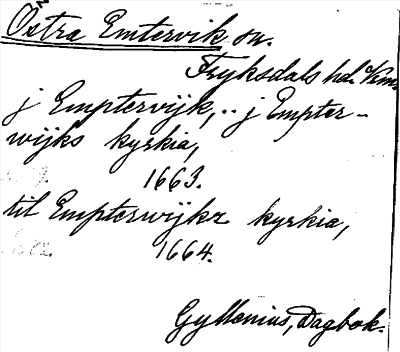 Östra Emtervik sn.
Fryksdals hd. Vrml.
j Emptervijk, .. j Empter-
wijks kyrkia,
1663.
til Empterwijkz kyrkia,
1664.
Gyllenius, Dagbok.